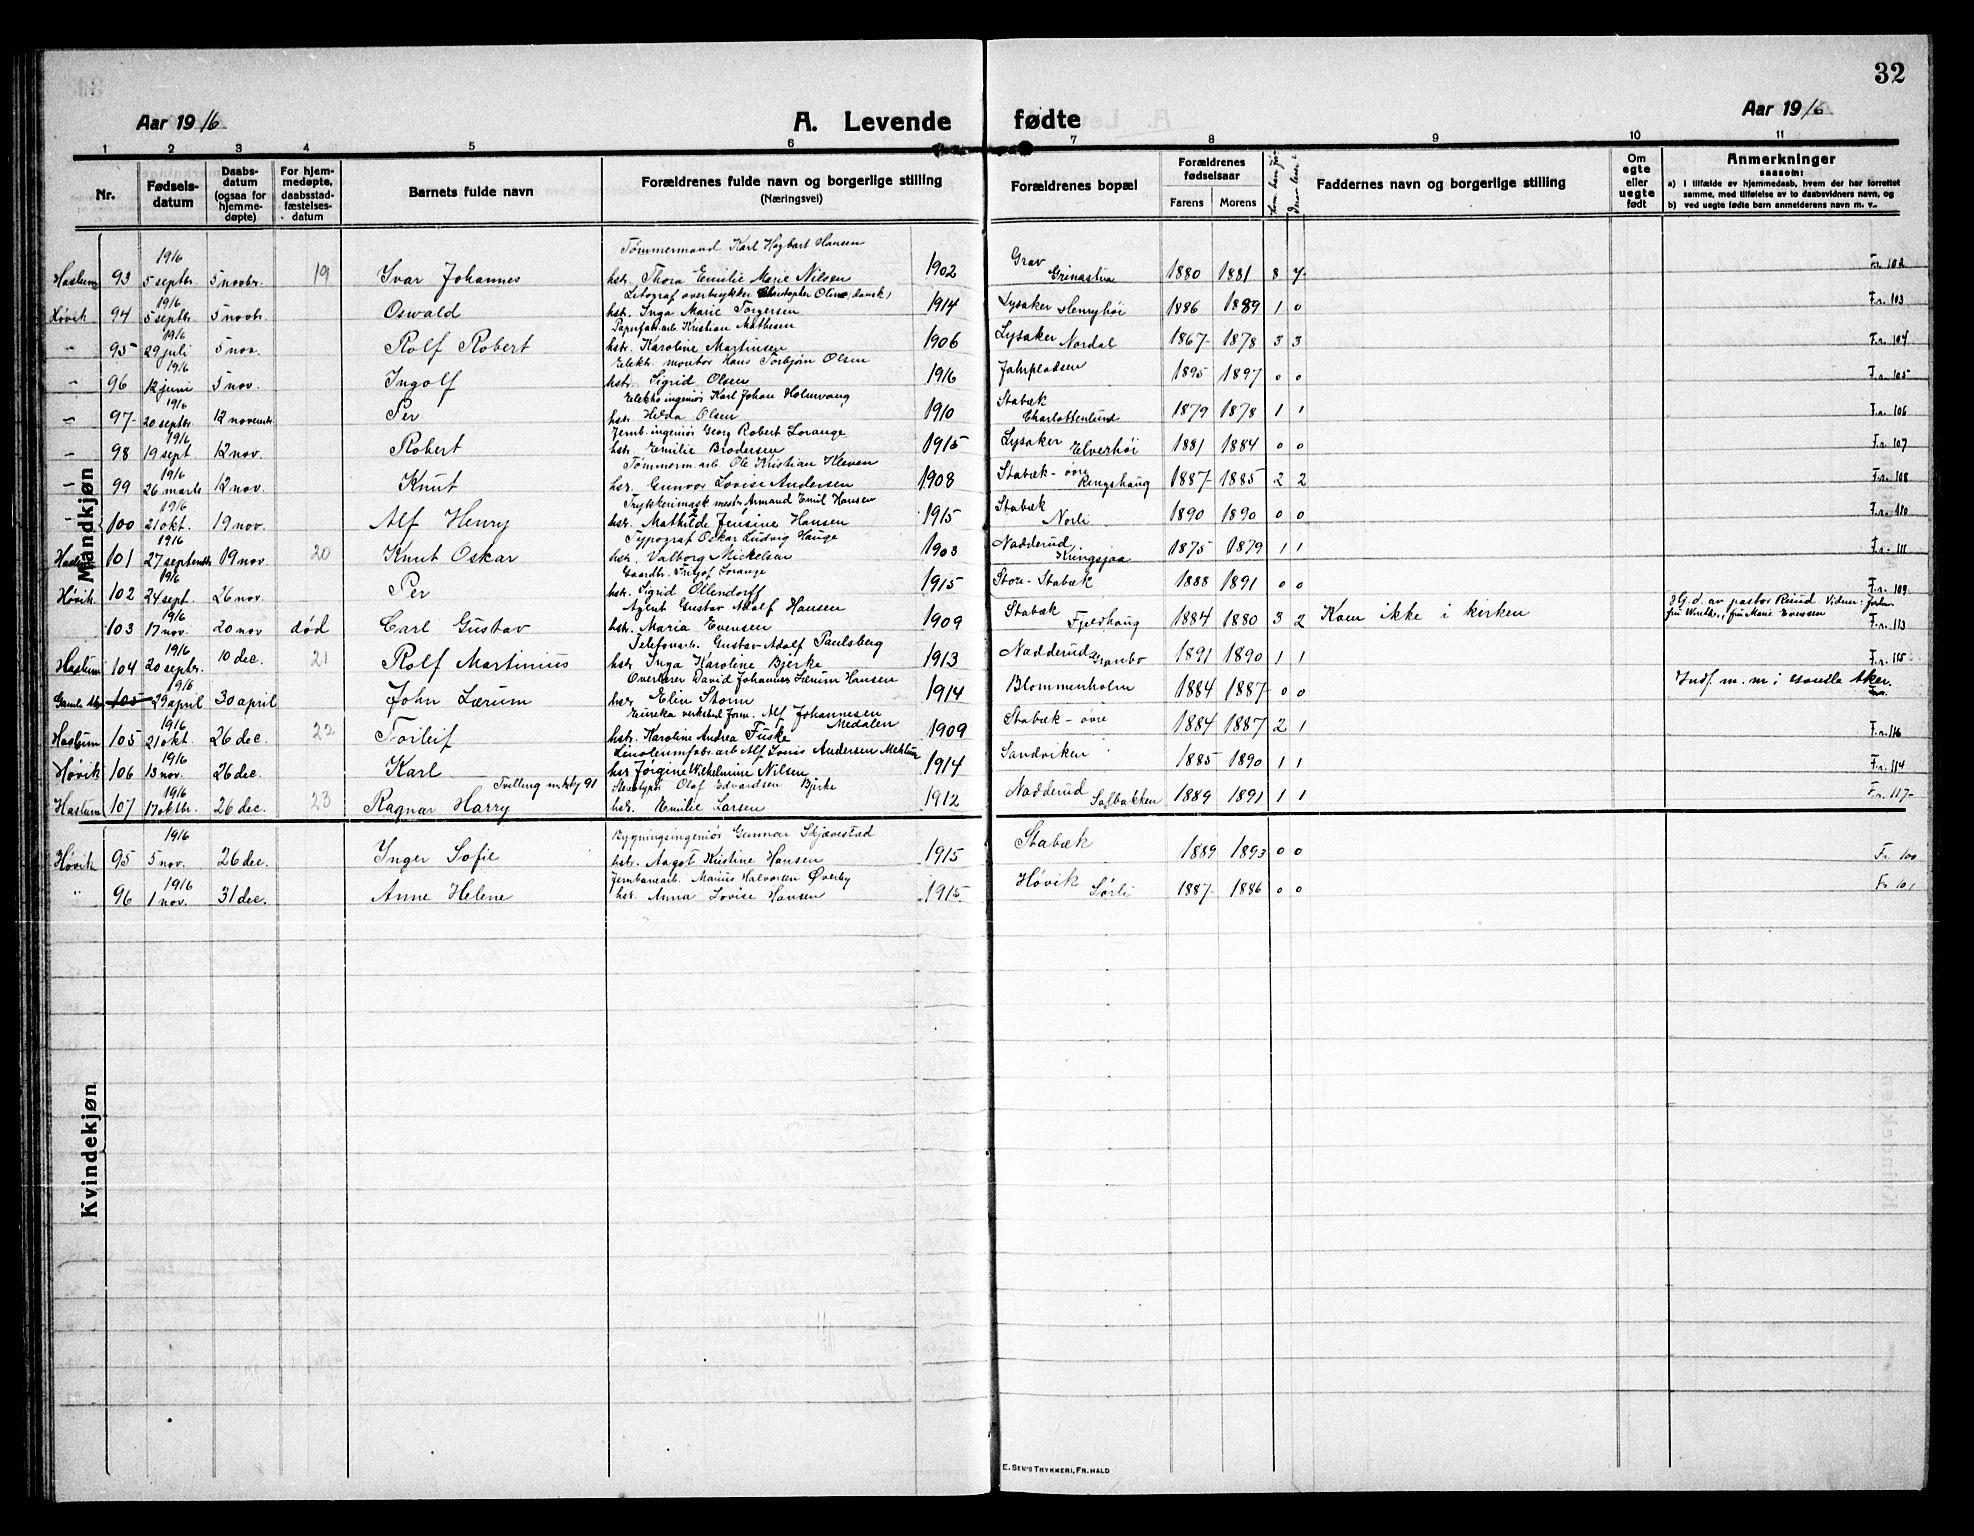 32
Aar 1916 A. Levende fødte Aar 1916
1 2 3 4 5 6 7 8 9 10 11
Nr. Fødselsdatum Daabsdatum (ogsaa for hjemmedøpte) For hjemmedøpte, daabsstadfæstelsesdatum Barnets fulde navn Forældrenes fulde navn og borgerlige stilling (Næringsvei) Forældrenes bopæl Forældrenes fødselsaar Farens Morens Faddernes navn og borgerlige stilling Om egte eller uegte født Anmerkninger saasom:
a) I tilfælde av hjemmedaab, hvem der har forrettet samme, med tilføielse av to daabsvidners navn, og
b) ved uegte fødte barn anmelderens navn m. v.
Mandkjøn
1916 Tømmermand Karl Hagbart Hansen Grav
Haslum 93 5 septbr. 5 novbr. 19 Ivar Johannes hstr. Thora Emilie Marie Nilsen 1902 Grinastua 1880 1881 8 7 Fr. 102
1916 Litograf overtrykker Christopher Oline, dansk, Lysaker
Høvik 94 5 septbr. 5 novbr. Oswald hstr. Inga Marie Torgersen 1914 Henryhøi 1886 1889 1 0 Fr. 103
1916 Papirfab.arb. Kristian Mathesen Lysaker
" 95 29 juli 5 nov. Rolf Robert hstr. Karoline Martinsen 1906 Nordal 1867 1878 3 3 Fr. 104
1916 Elekt. montør Hans Torbjøn Olsen
" 96 12 juni 5 nov. Ingolf hstr. Sigrid Olsen 1916 Jahrpladsen 1895 1897 0 0 Fr. 105
1916 Elektroingeniør Karl Johan Holmvang Stabæk
" 97 20 septbr. 12 novembr. Per hstr. Hilda Olsen 1910 Charlottenlund 1879 1878 1 1 Fr. 106
1916 Jernb. ingeniør Georg Robert Lorange Lysaker
" 98 19 sept. 12 nov. Robert hstr. Emilie Brodersen 1915 Elverhøi 1881 1884 0 0 Fr. 107
1916 Tømmerm. arb Ole Kristian Kleven Stabæk - øvre
" 99 26 marts 12 nov. Knut hstr. Gunvor Lovise Andersen 1908 Ringshaug 1887 1885 2 2 Fr. 108
1916 Trykkerimask mestr. Armand Emil Hansen Stabæk
" 100 21 okt. 19 nov. Alf Henry hstr. Mathilde Jensine Hansen 1915 Norli 1890 1890 0 0 Fr. 110
1916 Typograf Oskar Ludvig Hauge Nadderud
Haslum 101 27 septembr 19 nov. 20 Knut Oskar hstr. Valborg Mickelsen 1903 Kringsjaa 1875 1879 1 1 Fr. 111
1916 Gaardbr. Fritjof Lorange
Høvik 102 24 sept. 26 nov. Per hstr. Sigrid Ollendorff 1915 Store-Stabæk 1888 1891 0 0 Fr. 109
1916 Agent Gustav Adolf Hansen Stabæk H.G.d. av pastor Ruud. Vidner:
103 17 nov. 20 nov død Carl Gustav hstr. Maria Evensen 1909 Fjeldhaug 1884 1880 3 2 Kom ikke i kirken fru Marie Evensen Fr. 113
1916 Telefonarb. Gustav Adolf Paulsberg Nadderud
Haslum 104 20 septbr. 10 dec. 21 Rolf Martinius hstr. Inga Karoline Bjerke 1913 Granbo 1891 1890 1 1 Fr. 115
1916 Overlærer David Johannes Lærum Hansen
Gamle Aker 105 29 april 30 april John Lærum hstr. Elin Storm 1914 Blommenholm 1884 1887 0 0 Indf. m. m i Gamle Aker.
1916 Eureka verksted form. Alf Johannesen Medalen
Haslum 105 21 okt 26 dec. 22 Torleif hstr. Karoline Andrea Fuske 1909 Stabæk - øvre 1884 1887 2 1 Fr. 116
1916 Linoleumfabr. arb Alf Louis Andersen Mehlum
Høvik 106 13 nov. 26 dec. Karl hstr. Jørgine Wilhelmine Nilsen 1914 Sandviken 1885 1890 1 1 Fr. 114
1916 Tvilling m. kby 91 Stereotypør Olaf Edvardsen Bjerke Nadderud
Haslum 107 17 oktbr. 26 dec. 23 Ragnar Harry hstr. Emilie Larsen 1912 Solbakken 1889 1891 1 1 Fr. 117
Kvindekjøn
1916 Bygningsingeniør Gunnar Skjævestad
Høvik 95 5 nov. 26 dec. Inger Sofie hstr. Aagot Kristine Hansen 1915 Stabæk 1889 1893 0 0 Fr. 100
1916 Jernbanearb. Marius Halvorsen Øverby Høvik
" 96 1 nov. 31 dec. Anne Helene hstr. Anna Lovise Hansen 1915 Sørli 1887 1886 0 0 Fr. 101
E. SEM'S TRYKKERI, FR. HALD